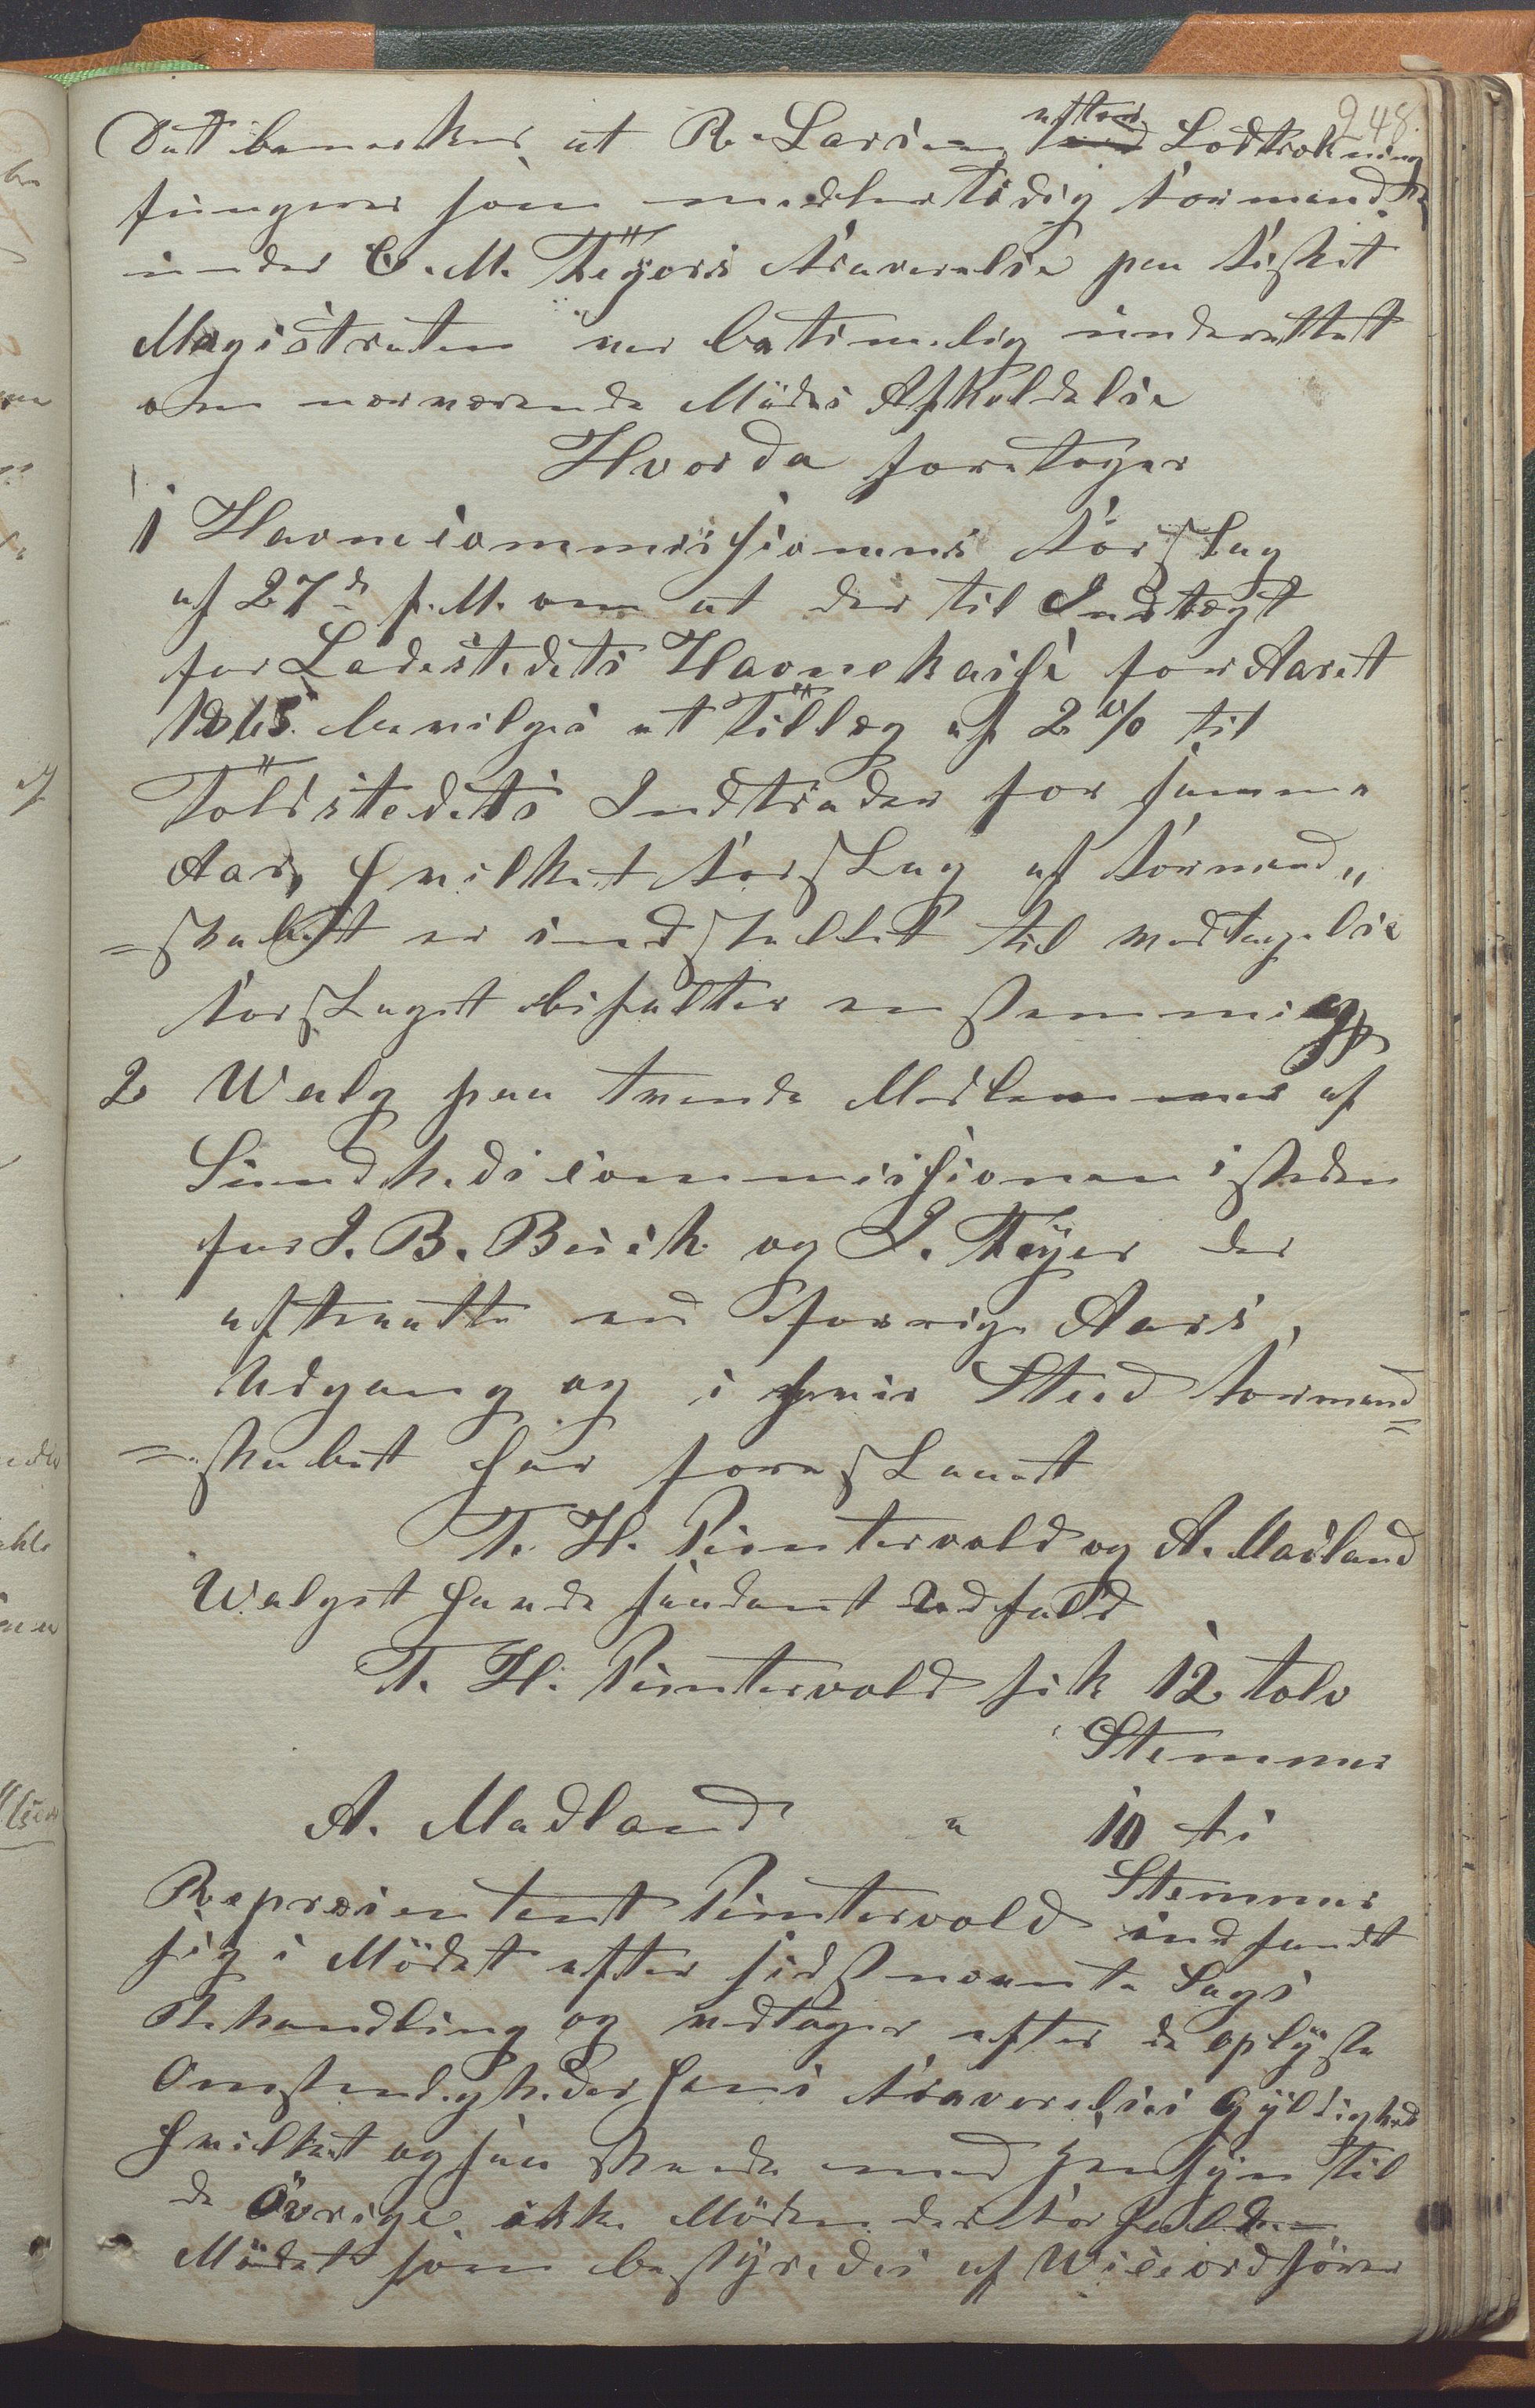 248.
Det bemærkes at R. Larsen efter Lodtrækning
fungerer som medlertidig Formand
under C. M. Feyers Fraværelse paa Fiskeri
Magistraten var betimelig underrettet
om nærværende Mödes Afholdelse
Hvorda foretoges
1 Havnecommissionens Forslag
af 27de f. M. om at der til Indtægt
for Ladestedets Havnekasse for Aaret
1865 bevilges et Tillæg af 2 % til
Toldstedets Indtrader for samme
Aar, hvilket Forslag af Formand„
=skabet er indstillet til vedtagelse
Forslaget bifaltes enstemmig
2 Walg paa tvende Medlemmer af
Sundhedscommissionen isteden
for J. B. Busch og J. Feyer der
aftraatte ved forrige Aars
Udgang og i hvis Sted Formand=
=skabet har foreslaaet
T. H. Puntervold og A. Madland
Walget havde saadant Udfald
T. H. Puntervold fik 12 tolv
Stemmer
A. Madland " 10 ti
Stemmer
Repræsentent Puntervold indfandt
sig i Mödet efter sidstnævnte Sags
Behandling og vedtoges efter de oplyste
Omstendigheder hans Fraværelses Gyldighed
hvilket ogsaa skede med hensyn til
de Övrige ikke Mödendes Forfald
Mödet som bestyredes af Wiceordförer